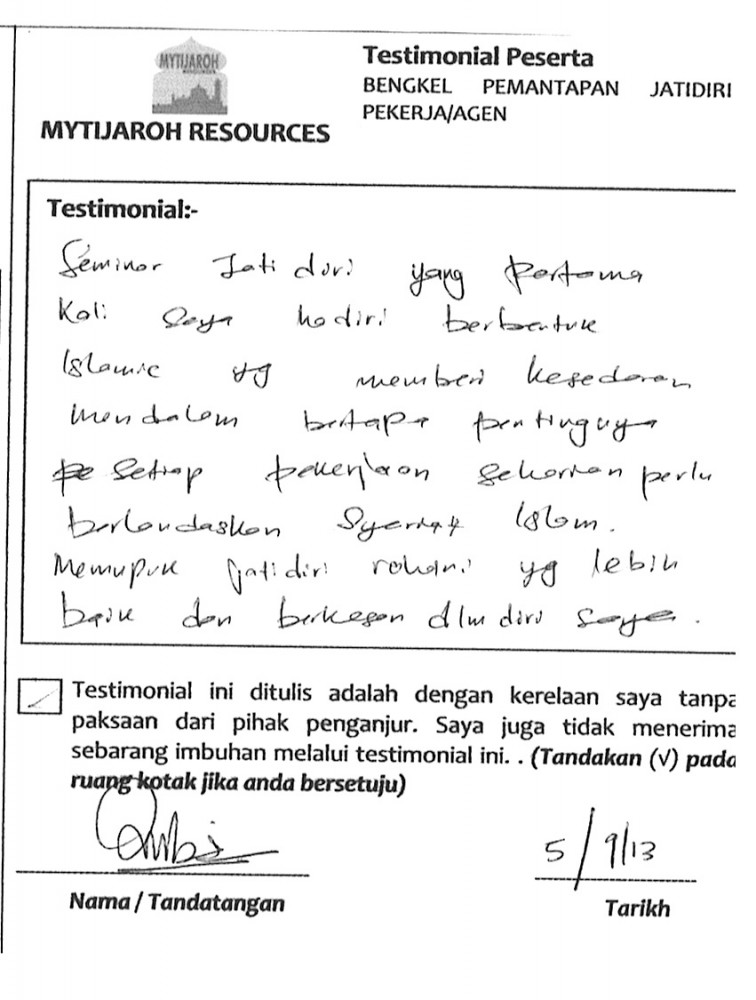 MYTIJAROH
RESOURCES
MYTIJAROH RESOURCES
Testimonial Peserta
BENGKEL PEMANTAPAN JATIDIRI
PEKERJA/AGEN
Testimonial:-
Seminar Jati diri yang pertama
Kali saya hadiri berbentuk
Islamic yg memberi kesedaran
mendalam betapa pentingnya
pe setiap pekerjaan seharian perlu
berlandaskan Syariat Islam.
Memupuk jatidiri rohani yg lebih
baik dan berkesan dlm diri saya.
Testimonial ini ditulis adalah dengan kerelaan saya tanpa
paksaan dari pihak penganjur. Saya juga tidak menerima
sebarang imbuhan melalui testimonial ini. . (Tandakan (√) pada
ruang kotak jika anda bersetuju)
5/9/13
Nama / Tandatangan
Tarikh